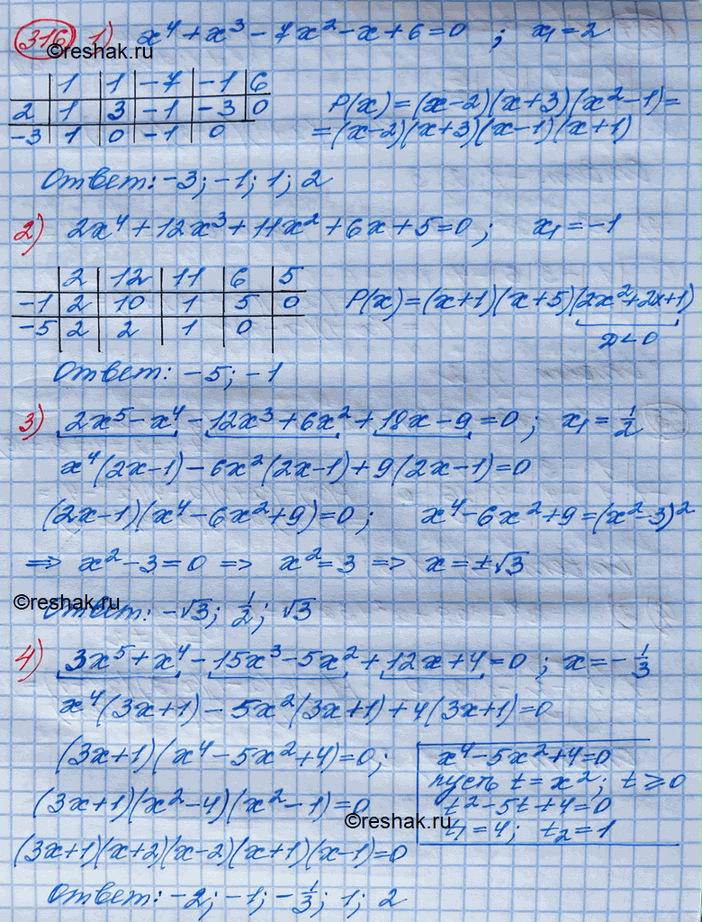 316 1) x⁴ + x³ - 7x² - x + 6 = 0 ; x₁ = 2
©reshak.ru
1 1 -7 -1 6
2 1 3 -1 -3 0
-3 1 0 -1 0
P(x) = (x-2)(x+3)(x²-1) =
= (x-2)(x+3)(x-1)(x+1)
Ответ: -3; -1; 1; 2
2) 2x⁴ + 12x³ + 11x² + 6x + 5 = 0 ; x₁ = -1
2 12 11 6 5
-1 2 10 1 5 0
-5 2 2 1 0
P(x) = (x+1)(x+5)(2x²+2x+1)
D < 0
Ответ: -5; -1
3) 2x⁵ - x⁴ - 12x³ + 6x² + 18x - 9 = 0 ; x₁ = 1/2
x⁴(2x-1) - 6x²(2x-1) + 9(2x-1) = 0
(2x-1)(x⁴ - 6x² + 9) = 0 ; x⁴ - 6x² + 9 = (x²-3)²
=> x² - 3 = 0 => x² = 3 => x = ±√3
©reshak.ru
Ответ: -√3; 1/2; √3
4) 3x⁵ + x⁴ - 15x³ - 5x² + 12x + 4 = 0 ; x = -1/3
x⁴(3x+1) - 5x²(3x+1) + 4(3x+1) = 0
(3x+1)(x⁴ - 5x² + 4) = 0;
(3x+1)(x²-4)(x²-1) = 0
(3x+1)(x+2)(x-2)(x+1)(x-1) = 0
x⁴ - 5x² + 4 = 0
пусть t = x² ; t ≥ 0
t² - 5t + 4 = 0
t₁ = 4; t₂ = 1
©reshak.ru
Ответ: -2; -1; -1/3; 1; 2